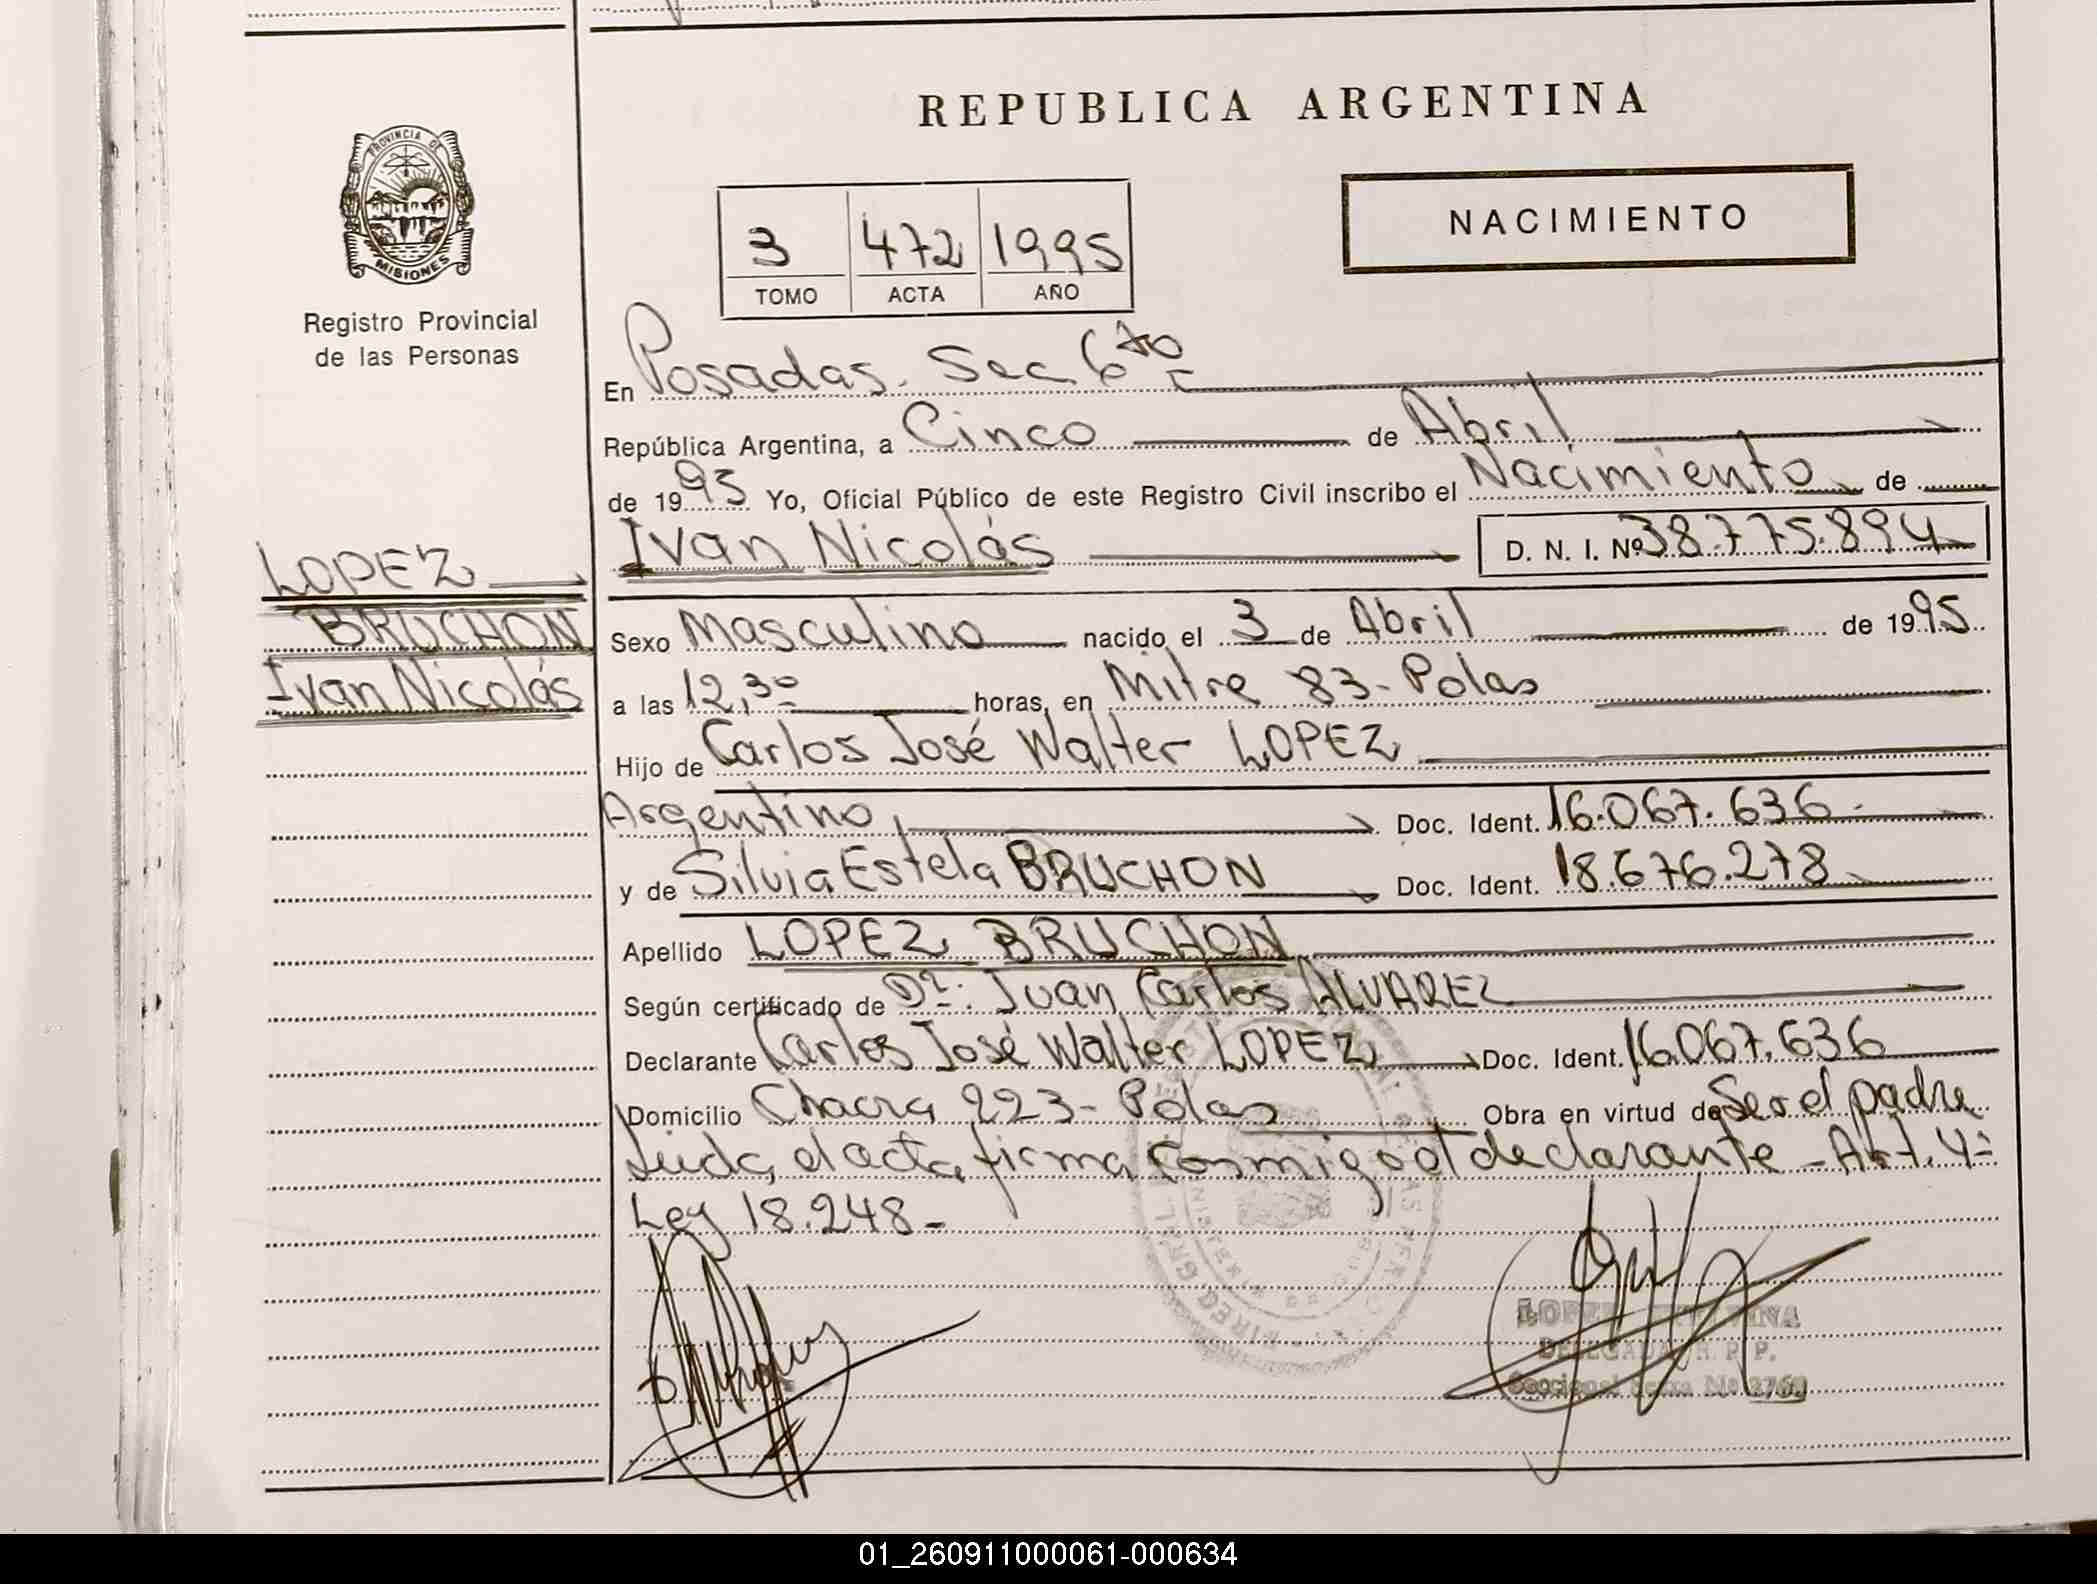 REPUBLICA ARGENTINA
PROVINCIA DE
MISIONES
Registro Provincial
de las Personas
NACIMIENTO
3 472 1995
TOMO ACTA AÑO
En Posadas. Sec. 6to
República Argentina, a Cinco de Abril
de 1995 Yo, Oficial Público de este Registro Civil inscribo el Nacimiento de
Ivan Nicolás D. N. I. Nº 38.775.894
LOPEZ
BRUCHON
Ivan Nicolás
Sexo Masculino nacido el 3 de Abril de 1995
a las 12,30 horas, en Mitre 83 - Pdas
Hijo de Carlos José Walter LOPEZ
Argentino Doc. Ident. 16.067.636
y de Silvia Estela BRUCHON Doc. Ident. 18.676.278
Apellido LOPEZ BRUCHON
Según certificado de Dr: Juan Carlos ALVAREZ
Declarante Carlos José Walter LOPEZ Doc. Ident. 16.067.636
Domicilio Chacra 223 - Pdas Obra en virtud de Ser el padre
Leida el acta firma conmigo el declarante - Art. 4º
Ley 18.248 -
LOPEZ
DELEGADA R. P. P.
Seccional Sexta Nº
01_260911000061-000634